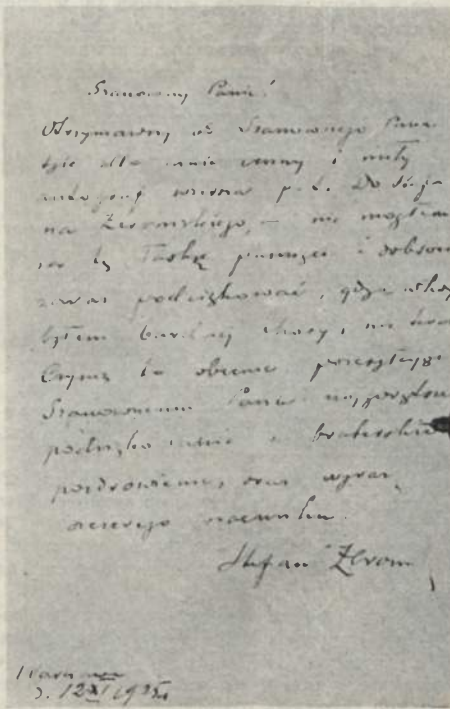 Szanowny Panie!
Otrzymawszy od Szanownego Pana
tyle dla mnie cenny i miły
autograf wiersza p. t. Do Stefa-
na Żeromskiego, — nie mogłem
za tę łaskę
zaraz podziękować, gdyż
byłem bardziej chory, na
Czynię to obecnie przesyłając
Szanownemu Panu
podziękowanie i braterskie
pozdrowienie, oraz wyraz
szczerego szacunku.
Stefan Żerom
Warszawa
d. 12 XI 1925